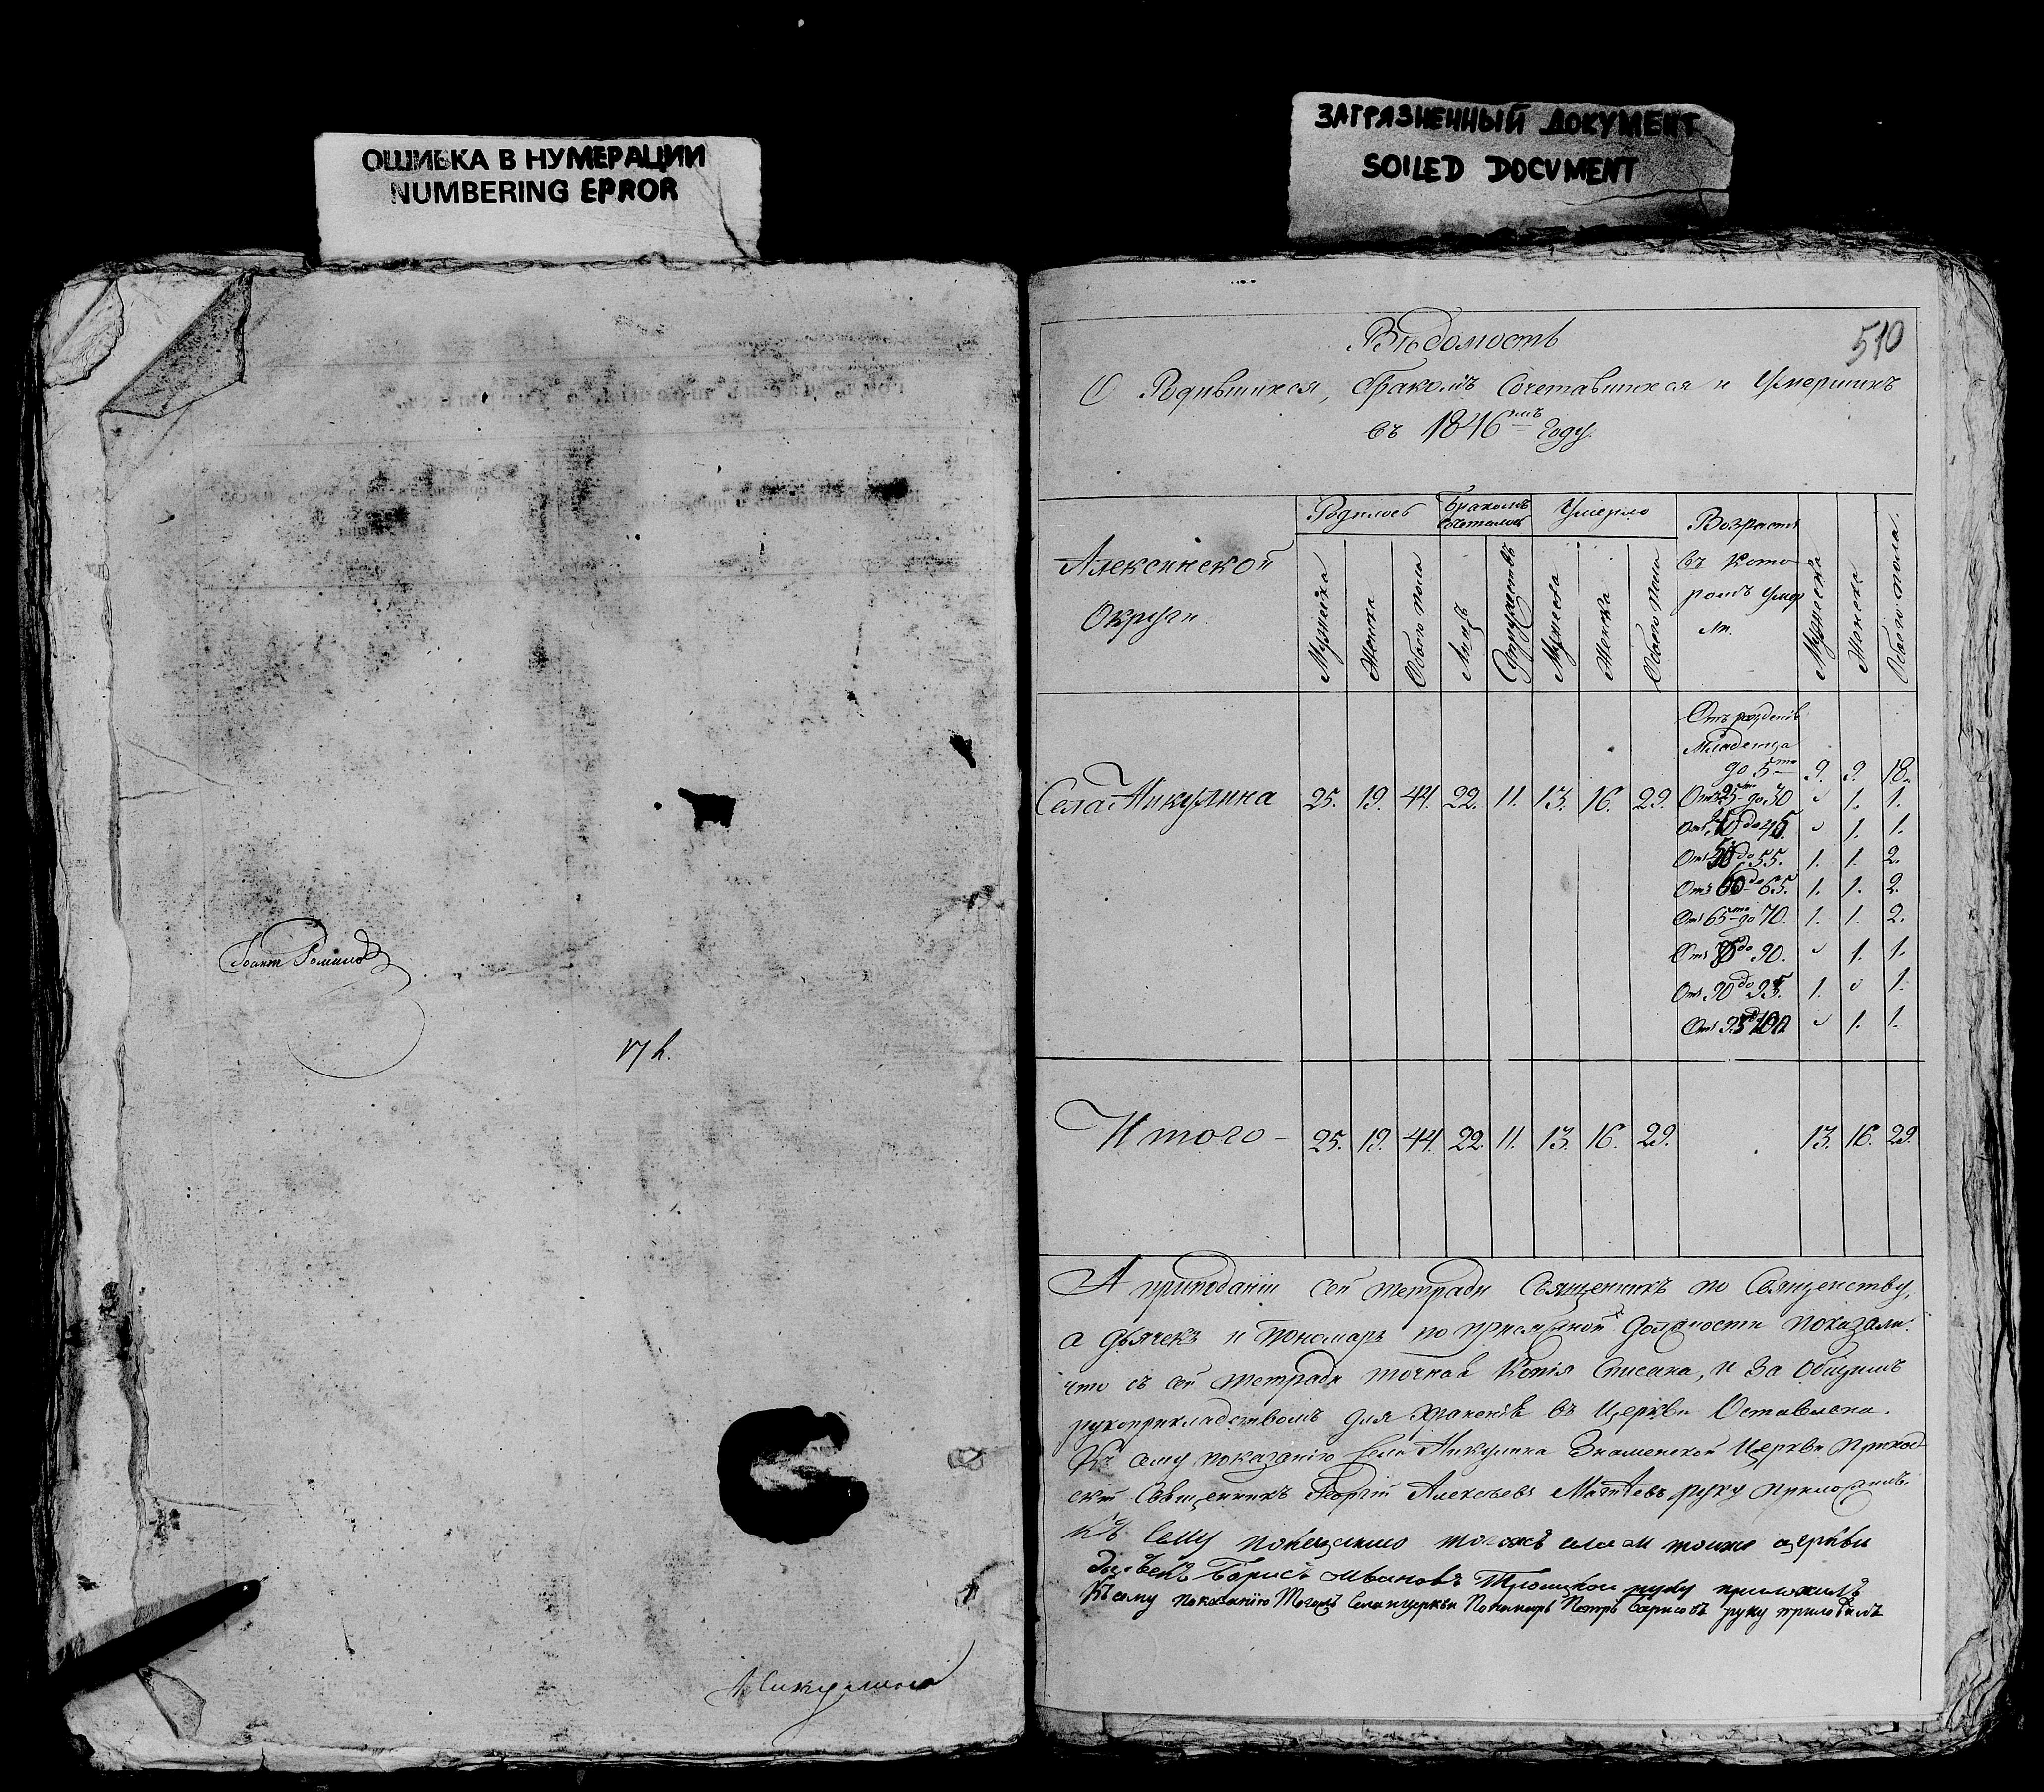 ОШИБКА В НУМЕРАЦИИ
NUMBERING ERROR
Іоаннъ
17 h.
Никулина
ЗАГРЯЗНЕННЫЙ ДОКУМЕНТ
SOILED DOCUMENT
510
Вѣдомость
О Родившихся, бракомъ сочетавшихся и Умершихъ
въ 1846мъ году.
Алексинской Округи.
Родилось
Бракомъ сочеталось
Умерло
Возрастъ въ которомъ умерли.
Мужеска
Женска
Обоего пола
Лицъ
Супружествъ
Мужеска
Женска
Обоего пола
Мужеска
Женска
Обоего пола.
Отъ рожденія
Младенца
до 5ти 9. 9. 18.
Села Никулина 25. 19. 44. 22. 11. 13. 16. 29. Отъ 25ти до 30 0 1. 1.
Отъ 40 до 45. 0 1. 1.
Отъ 50 до 55. 1. 1. 2.
Отъ 60 до 65. 1. 1. 2.
Отъ 65ти до 70. 1. 1. 2.
Отъ до 90. 0 1. 1.
Отъ 90 до 95. 1. 0 1.
Отъ 95 до 100 0 1. 1.
Итого - 25. 19. 44. 22. 11. 13. 16. 29. 13. 16. 29.
А при поданіи сей тетради Священникъ по Священству,
а дьячекъ и пономарь по присяжной должности показали:
что съ сей тетради точная Копія списана, и за общимъ
рукоприкладствомъ для храненія въ Церкви Оставлена.
Къ сему показанію Села Никулина Знаменской Церкви приход
скій Священникъ Георгій Алексѣевъ руку приложилъ.
Къ сему показанию тогожъ села и тоиже церкви
дьячекъ Борисъ Ивановъ Троицкой руку приложилъ
Къ сему показанію Тогожъ Села и церкви Пономарь Петръ Борисовъ руку приложилъ